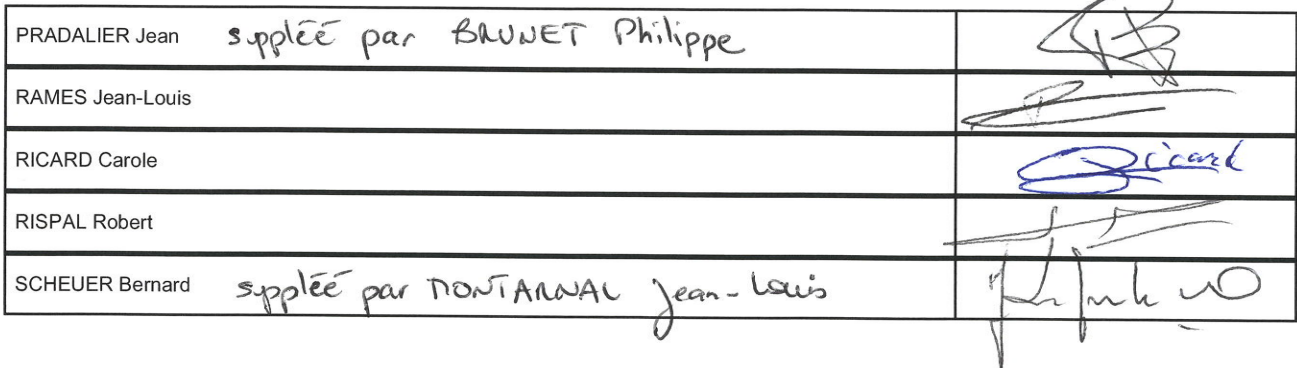 PRADALIER Jean suppléé par BRUNET Philippe
RAMES Jean-Louis
RICARD Carole Ricard
RISPAL Robert
SCHEUER Bernard suppléé par MONTARNAL Jean-Louis